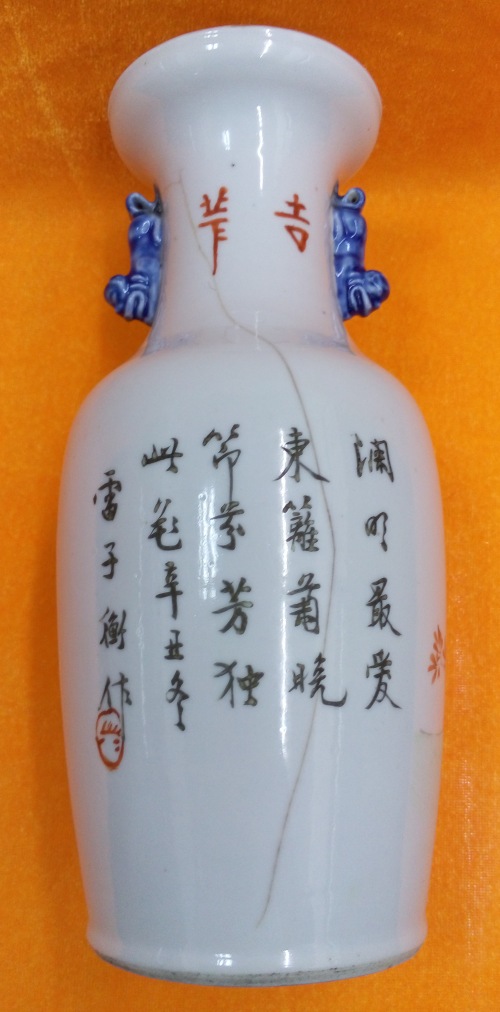 吉
渊明最愛
東籬菊晚
節芬芳独
此花辛丑冬
雷子衡作